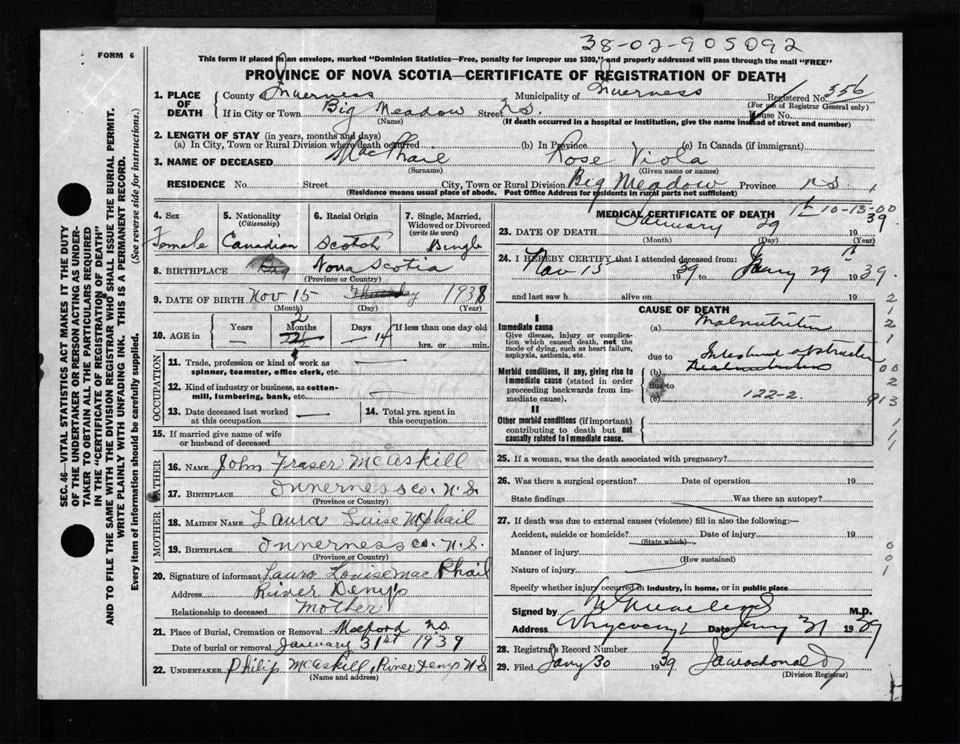 38-02-905092
FORM 6
This form if placed in an envelope, marked "Dominion Statistics—Free, penalty for improper use $300," and properly addressed will pass through the mail "FREE"
PROVINCE OF NOVA SCOTIA—CERTIFICATE OF REGISTRATION OF DEATH
1. PLACE OF DEATH County Inverness Municipality of Inverness Registered No. 356
(For use of Registrar General only.)
If in City or Town Big Meadow Street NS House No.
(Name) (If death occurred in a hospital or institution, give the name instead of street and number)
2. LENGTH OF STAY (in years, months and days)
(a) In City, Town or Rural Division where death occurred (b) In Province (c) In Canada (if immigrant)
3. NAME OF DECEASED MacPhail Rose Viola
(Surname) (Given name or names)
RESIDENCE No. Street City, Town or Rural Division Big Meadow Province N.S.
(Residence means usual place of abode. Post Office Address for residents in rural parts not sufficient)
SEC. 46—VITAL STATISTICS ACT MAKES IT THE DUTY
OF THE UNDERTAKER OR PERSON ACTING AS UNDER-
TAKER TO OBTAIN ALL THE PARTICULARS REQUIRED
IN THE "CERTIFICATE OF REGISTRATION OF DEATH"
AND TO FILE THE SAME WITH THE DIVISION REGISTRAR WHO SHALL ISSUE THE BURIAL PERMIT.
WRITE PLAINLY WITH UNFADING INK. THIS IS A PERMANENT RECORD.
Every item of information should be carefully supplied. (See reverse side for instructions.)
4. Sex 5. Nationality (Citizenship) 6. Racial Origin 7. Single, Married, Widowed or Divorced (write the word)
Female Canadian Scotch Single
8. BIRTHPLACE Big Nova Scotia
(Province or Country)
9. DATE OF BIRTH Nov 15 Thursday 1938
(Month) (Day) (Year)
10. AGE in Years Months Days If less than one day old
— 2 14 hrs. or min.
OCCUPATION
11. Trade, profession or kind of work as
spinner, teamster, office clerk, etc.
12. Kind of industry or business, as cotton-
mill, lumbering, bank, etc.
13. Date deceased last worked at this occupation 14. Total yrs. spent in this occupation
15. If married give name of wife
or husband of deceased
FATHER
16. NAME John Fraser McAskill
17. BIRTHPLACE Innerness co. N.S.
(Province or Country)
MOTHER
18. MAIDEN NAME Laura Luise McPhail
19. BIRTHPLACE Innerness co. N.S.
(Province or Country)
20. Signature of informant Laura Louise mac Phail
Address River Denys
Relationship to deceased mother
21. Place of Burial, Cremation or Removal Malford N.S.
Date of burial or removal January 31st 1939
22. UNDERTAKER Philip McAskill, River Denys N.S
(Name and address)
MEDICAL CERTIFICATE OF DEATH 10-13-00
23. DATE OF DEATH January 29 1939
(Month) (Day) (Year)
24. I HEREBY CERTIFY that I attended deceased from:
Nov 15 1939 to Jany 29 1939.
and last saw h alive on 19
CAUSE OF DEATH
I
Immediate cause (a) Malnutrition
Give disease, injury or complica-
tion which caused death, not the
mode of dying, such as heart failure,
asphyxia, asthenia, etc.
due to Intestinal obstruction
Morbid conditions, if any, giving rise to (b)
immediate cause (stated in order due to
proceeding backwards from im- (c) 122-2.
mediate cause).
II
Other morbid conditions (if important)
contributing to death but not
causally related to immediate cause.
25. If a woman, was the death associated with pregnancy?
26. Was there a surgical operation? Date of operation 19
State findings Was there an autopsy?
27. If death was due to external causes (violence) fill in also the following:—
Accident, suicide or homicide? Date of injury 19
(State which)
Manner of injury
(How sustained)
Nature of injury
Specify whether injury occurred in industry, in home, or in public place
Signed by M.D.
Address Whycocomagh Date Jany 31 1939
28. Registrar's Record Number
29. Filed Jany 30 1939
(Division Registrar)